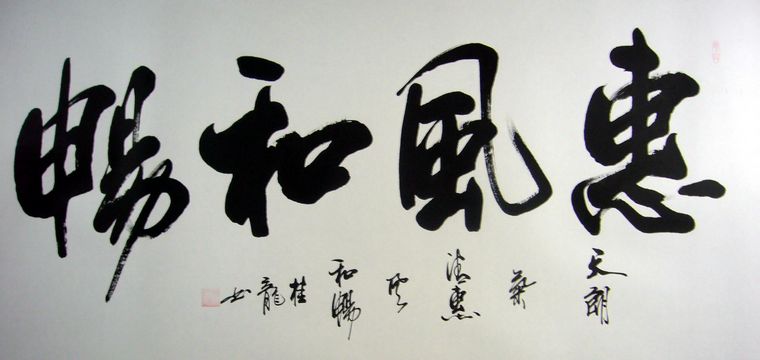 惠風和暢
天朗氣清惠风和暢 桂龍书